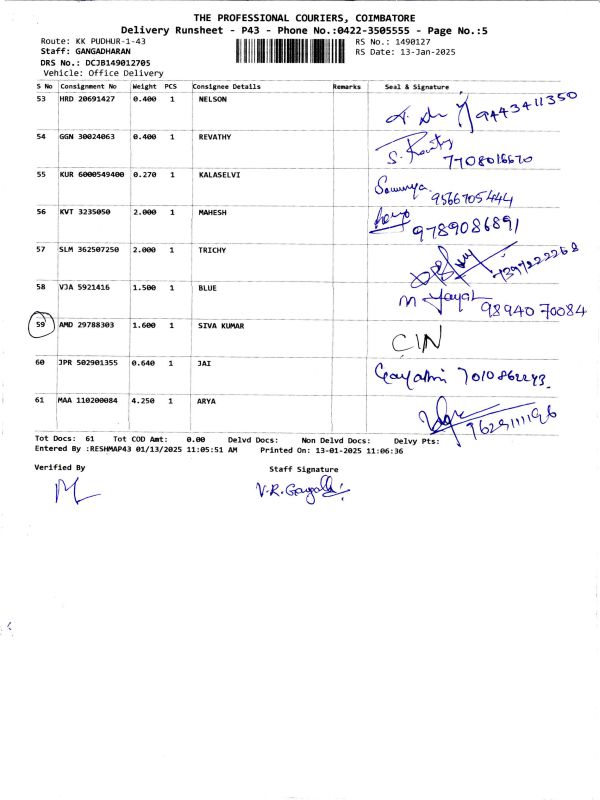 THE PROFESSIONAL COURIERS, COIMBATORE
Delivery Runsheet - P43 - Phone No.:0422-3505555 - Page No.:5
Route: KK PUDHUR-1-43 RS No.: 1490127
Staff: GANGADHARAN RS Date: 13-Jan-2025
DRS No.: DCJB149012705
Vehicle: Office Delivery
S No Consignment No Weight PCS Consignee Details Remarks Seal & Signature
53 HRD 20691427 0.400 1 NELSON 9443411350
54 GGN 30024063 0.400 1 REVATHY S. 7708016670
55 KUR 6000549400 0.270 1 KALASELVI Sowmya. 9566705444
56 KVT 3235050 2.000 1 MAHESH 9789086891
57 SLM 362507250 2.000 1 TRICHY
58 VJA 5921416 1.500 1 BLUE 9894070084
59 AMD 29788303 1.600 1 SIVA KUMAR CIN
60 JPR 502901355 0.640 1 JAI Gayathri
61 MAA 110200084 4.250 1 ARYA
Tot Docs: 61 Tot COD Amt: 0.00 Delvd Docs: Non Delvd Docs: Delvy Pts:
Entered By :RESHMAP43 01/13/2025 11:05:51 AM Printed On: 13-01-2025 11:06:36
Verified By Staff Signature